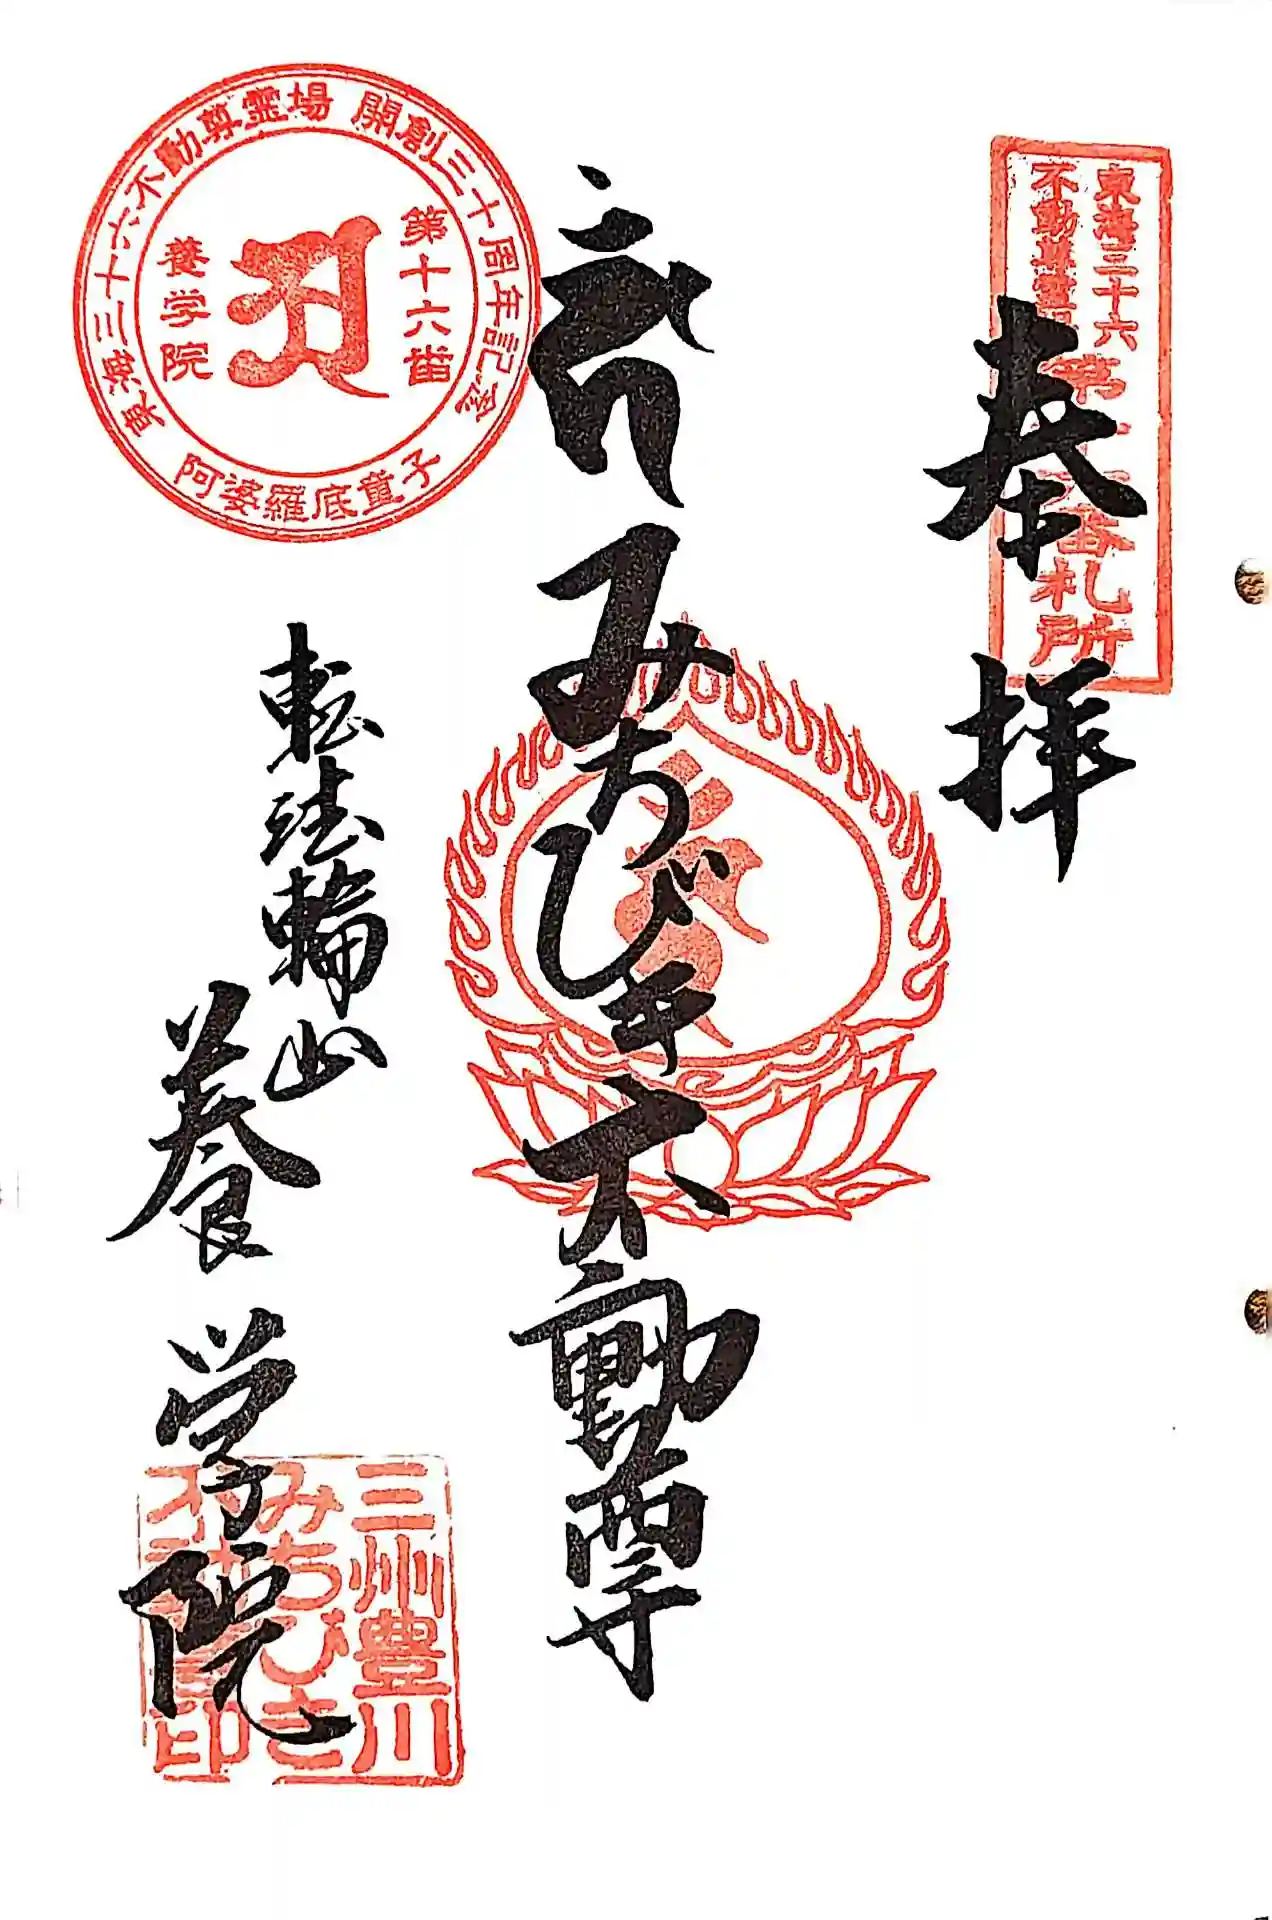 東海三十六
不動尊霊場
第十六番札所
奉拝
みちびき不動尊
転法輪山
養学院
東海三十六不動尊霊場 開創三十周年記念
第十六番
養学院
阿婆羅底童子
三州豊川
みちびき
印